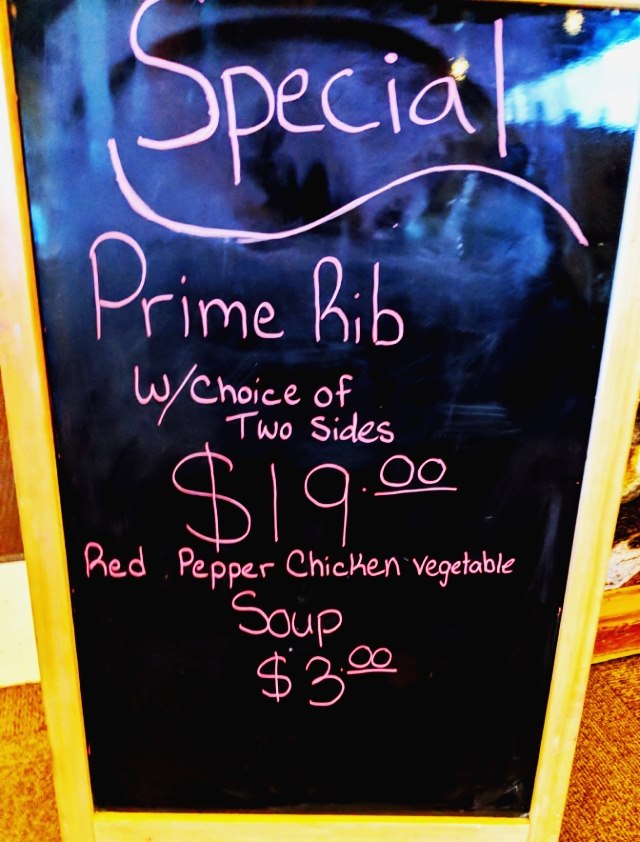 Special
Prime Rib
W/Choice of
Two Sides
$19.00
Red Pepper Chicken vegetable
Soup
$3.00